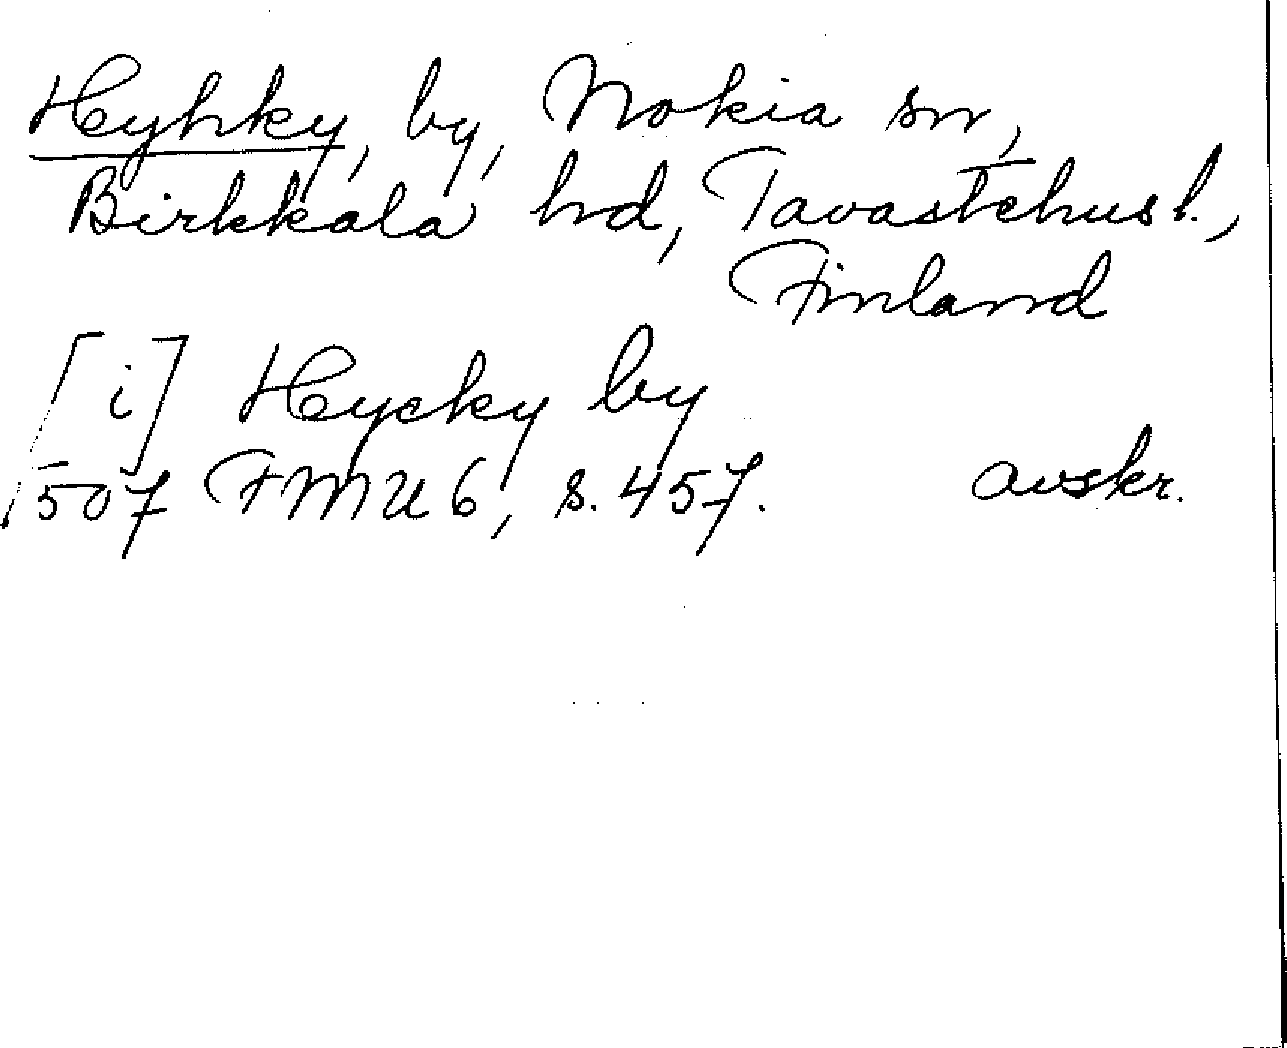 Hyhky, by, Nokia sn,
Birkkala hd, Tavastehus l.,
Finland
[i] Hycky by
1507 FMU 6, s. 457. avskr.